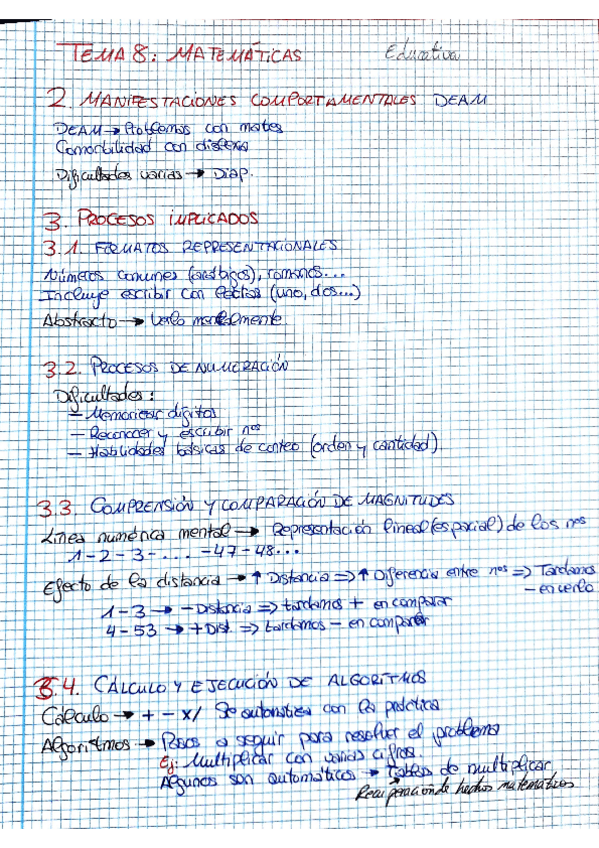 TEMA 8: MATEMÁTICAS Educativa
2. MANIFESTACIONES COMPORTAMENTALES DEAM
DEAM → Problemas con mates
Comorbilidad con dislexia
Dificultades varias → Diap.
3. PROCESOS IMPLICADOS
3.1. FORMATOS REPRESENTACIONALES
Números comunes (arábigos), romanos...
Incluye escribir con letras (uno, dos...)
Abstracto → Verlo mentalmente.
3.2. PROCESOS DE NUMERACIÓN
Dificultades:
- Memorizar dígitos
- Reconocer y escribir nos
- Habilidades básicas de conteo (orden y cantidad)
3.3. COMPRENSIÓN Y COMPARACIÓN DE MAGNITUDES
Línea numérica mental → Representación lineal (espacial) de los nos
1-2-3-... -47-48...
Efecto de la distancia → ↑ Distancia ⇒ ↑ Diferencia entre nos ⇒ Tardamos
- en verlo
1-3 → - Distancia ⇒ tardamos + en comparar
4-53 → + Dist. ⇒ tardamos - en comparar
3.4. CÁLCULO Y EJECUCIÓN DE ALGORITMOS
Cálculo → + - x / Se automatiza con la práctica
Algoritmos → Pasos a seguir para resolver el problema
Ej: Multiplicar con varias cifras.
Algunos son automáticos → Tablas de multiplicar
Recuperación de hechos matemáticos